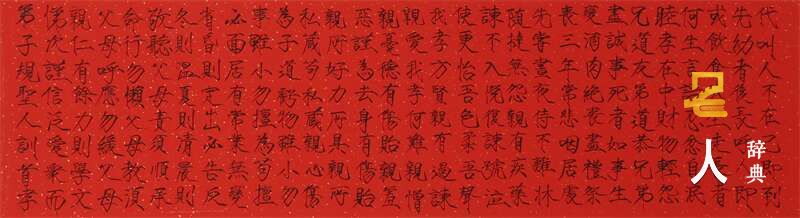 第子規聖人訓首孝
悌次謹信泛愛衆而
親仁有餘力則學文
父母呼應勿緩父母
命行勿懶父母教須
敬聽父母責須順承
冬則溫夏則凊晨則
省昏則定出必告反
必面居有常業無變
事雖小勿擅為苟擅
為子道虧物雖小勿
私藏苟私藏親心傷
親所好力所具親所
惡謹為去身有傷貽
親憂德有傷貽親羞
親愛我孝何難親憎
我孝方賢親有過諫
使更怡吾色柔吾聲
諫不入悅復諫號泣
隨撻無怨親有疾藥
先嘗晝夜侍不離牀
喪三年常悲咽居處
變酒肉絕喪盡禮祭
盡誠事死者如事生
兄道友弟道恭兄弟
睦孝在中財物輕怨
何生言語忍忿自泯
或飲食或走者
先幼者後長呼即
代叫人不在己即到
人
辞典